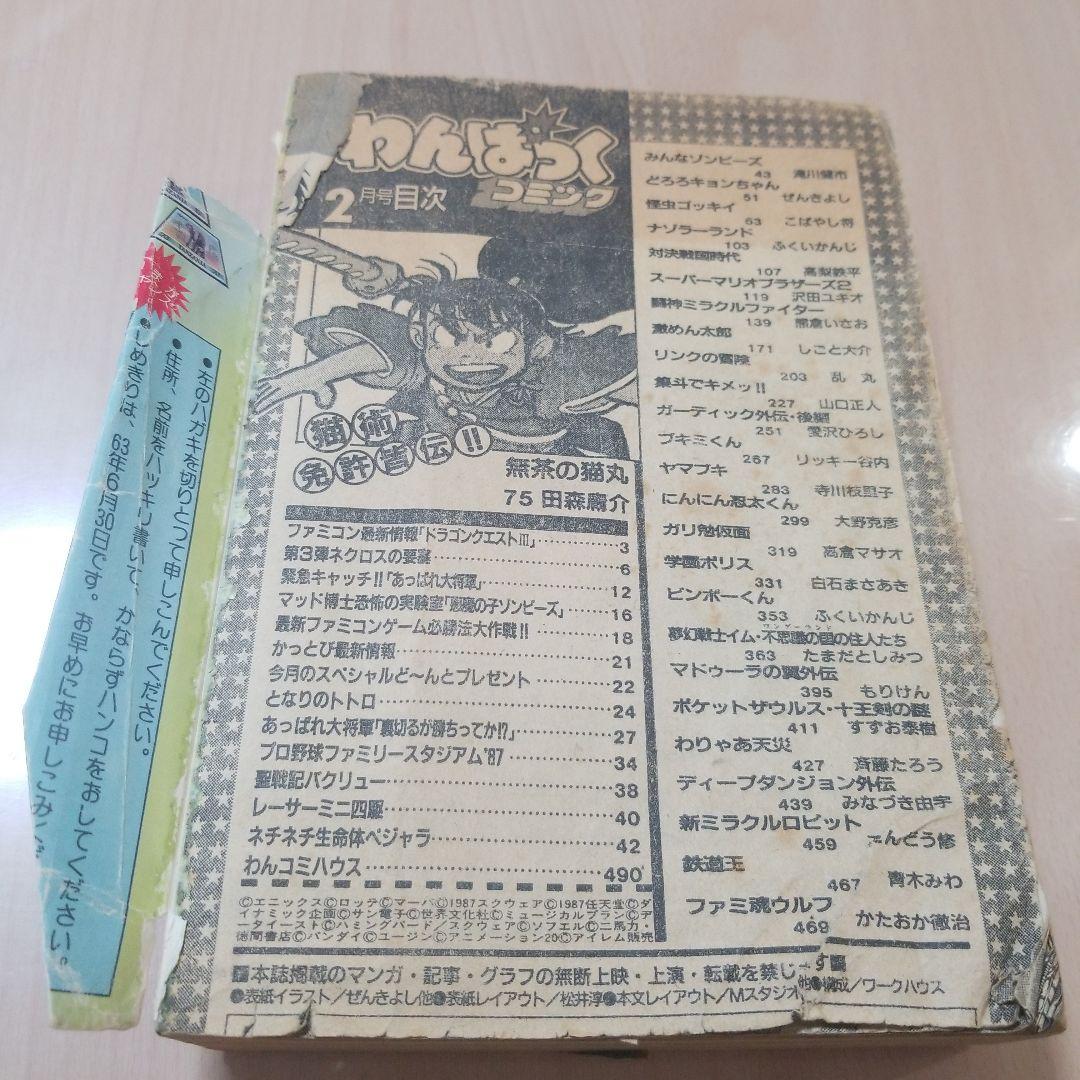 わんぱっく
コミック
2月号目次
猫術
免許皆伝!!
無茶の猫丸
75 田森庸介
ファミコン最新情報「ドラゴンクエストIII」……………3
第3弾ネクロスの要塞……………6
緊急キャッチ!!「あっぱれ大将軍」……………12
マッド博士恐怖の実験室「悪魔の子ゾンビーズ」……16
最新ファミコンゲーム必勝法大作戦!!……………18
かっとび最新情報……………21
今月のスペシャルど〜んとプレゼント……………22
となりのトトロ……………24
あっぱれ大将軍「裏切るが勝ちってか!?」……………27
プロ野球ファミリースタジアム'87……………34
聖戦記バクリュー……………38
レーサーミニ四駆……………40
ネチネチ生命体ベジャラ……………42
わんコミハウス……………490
©エニックス©ロッテ©マーバ©1987スクウェア©1987任天堂©ダ
イナミック企画©サン電子©世界文化社©ミュージカルプラン©デ
ータイースト©ハミングバード/スクウェア©ソフエル©二馬力・
徳間書店©バンダイ©ユージン©アニメーション20©アイレム販売
みんなゾンビーズ
43 滝川健市
どろろキョンちゃん
51 ぜんきよし
怪虫ゴッキイ
63 こばやし将
ナゾラーランド
103 ふくいかんじ
対決戦国時代
107 高梨鉄平
スーパーマリオブラザーズ2
119 沢田ユキオ
闘神ミラクルファイター
139 熊倉いさお
激めん太郎
171 しごと大介
リンクの冒険
203 乱丸
集斗でキメッ!!
227 山口正人
ガーディック外伝・後編
251 愛沢ひろし
ブキミくん
267 リッキー谷内
ヤマブキ
283 寺川枝里子
にんにん忍太くん
299 大野克彦
ガリ勉仮面
319 高倉マサオ
学園ポリス
331 白石まさあき
ビンボーくん
353 ふくいかんじ
夢幻戦士イム・不思議の国の住人たち
363 たまだとしみつ
マドゥーラの翼外伝
395 もりけん
ポケットザウルス・十王剣の謎
411 すずお泰樹
わりゃあ天災
427 斉藤たろう
ディープダンジョン外伝
439 みなづき由宇
新ミラクルロビット
459 んどう修
鉄道王
467 青木みわ
ファミ魂ウルフ
469 かたおか徹治
本誌掲載のマンガ・記事・グラフの無断上映・上演・転載を禁じます
●表紙イラスト/ぜんきよし他●表紙レイアウト/松井淳●本文レイアウト/Mスタジオ他●構成/ワークハウス
●左のハガキを切りとって申しこんでください。
●住所、名前をハッキリ書いて、かならずハンコをおしてください。
●しめきりは、63年6月30日です。お早めにお申しこみくだ